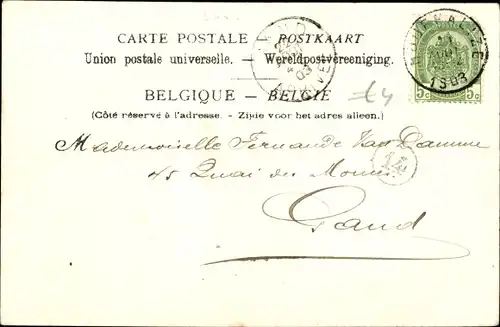 CARTE POSTALE — POSTKAART
Union postale universelle. — Wereldpostvereeniging.
BELGIQUE — BELGIE
(Côté réservé à l'adresse. — Zijde voor het adres alleen.)
5c 5c
1903
03
14
Mademoiselle Fernande Van Damme
45 Quai des Moines
Gand